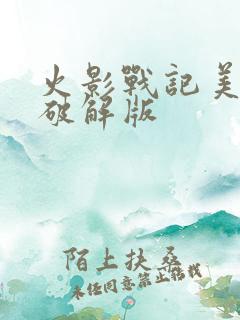 火影戰記美
破解版
陌上扶桑
未经同意禁止转载